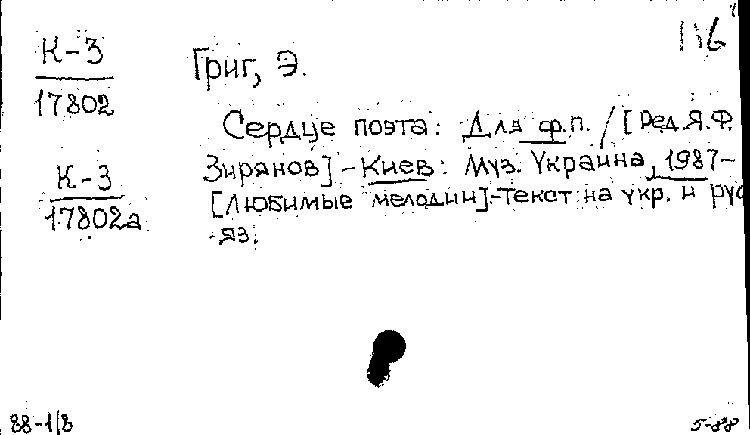 116
К-3
17802
Григ, Э.
Сердце поэта: Для ф.п. / [Ред. Я.Ф.
Зирянов] - Киев: Муз. Україна, 1987-
К-3
17802а
[Любимые мелодии]-Текст на укр. и рус
яз.
88-1/8
5-88